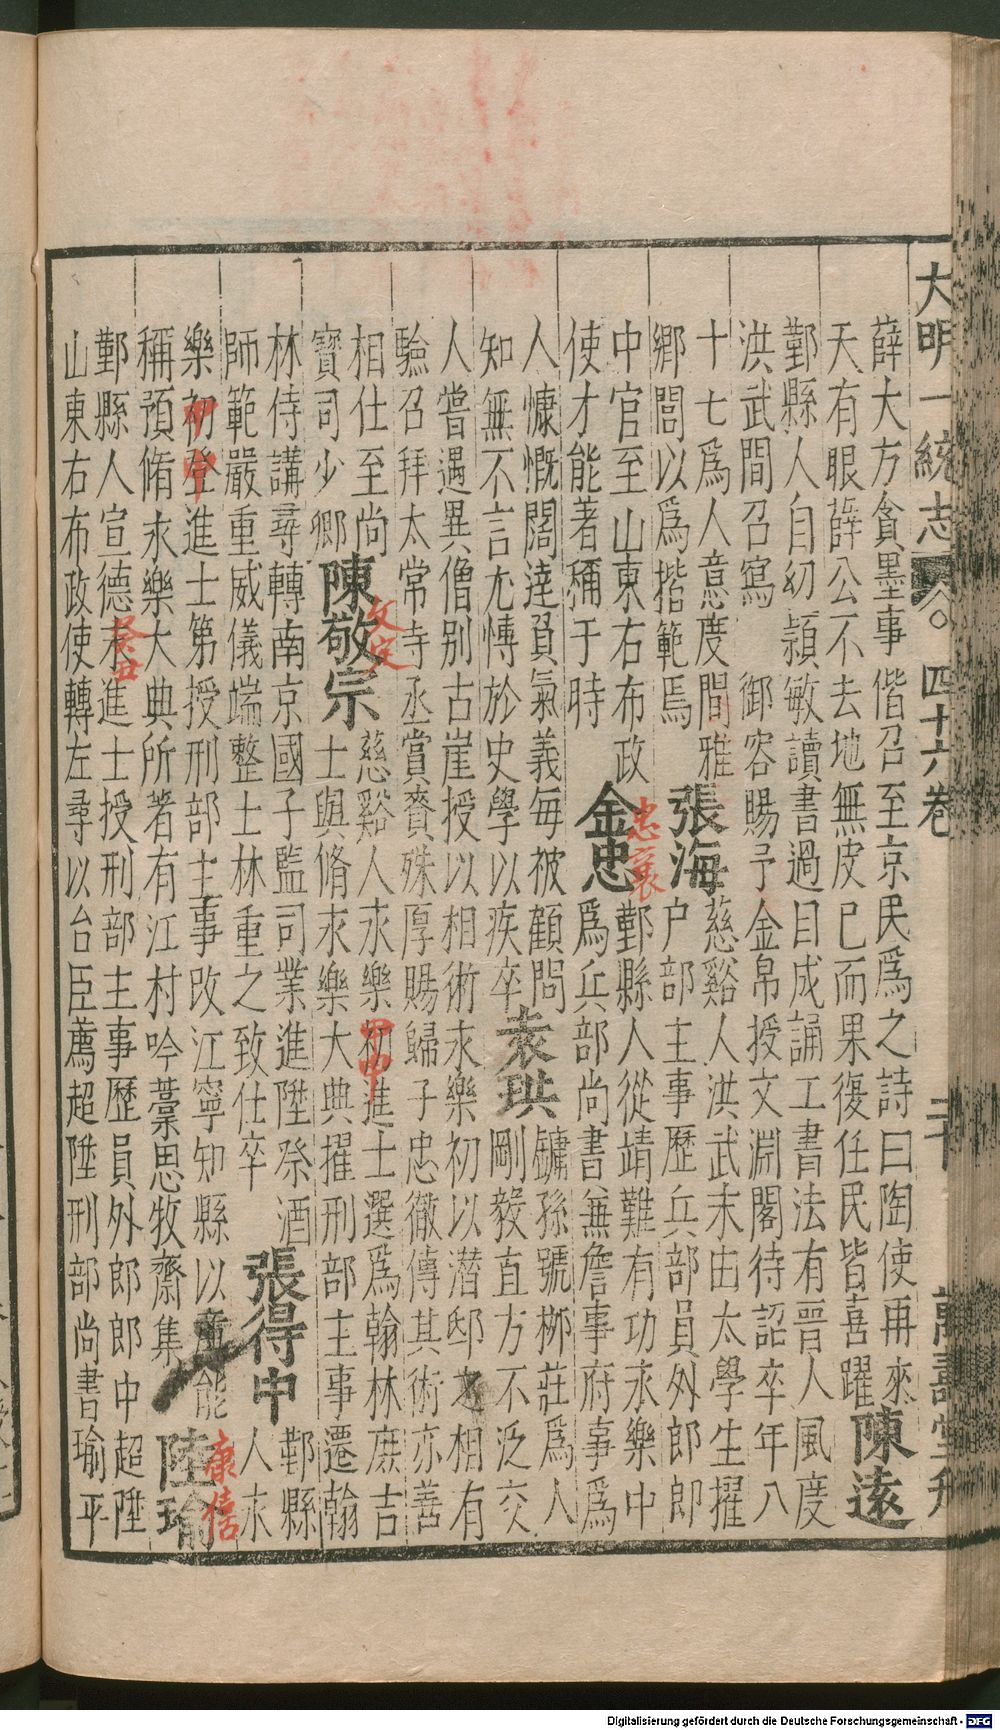 大明一統志 四十六卷 二十 萬壽堂刊
薛大方貪墨事偕召至京民爲之詩曰陶使再來
天有眼薛公不去地無皮已而果復任民皆喜躍
陳遠
鄞縣人自幼穎敏讀書過目成誦工書法有晉人風度
洪武間召寫 御容賜予金帛授文淵閣待詔卒年八
十七爲人意度間雅
鄉閭以爲揩範焉
張海
慈谿人洪武末由太學生擢
戶部主事歷兵部員外郎郎
中官至山東右布政
使才能著稱于時
金忠
忠襄
鄞縣人從靖難有功永樂中
爲兵部尚書兼詹事府事爲
人慷慨闊達負氣義每被顧問
知無不言尤慱於史學以疾卒
袁珙
鏞孫號栁莊爲人
剛毅直方不泛交
人嘗遇異僧别古崖授以相術永樂初以潛邸之相有
驗召拜太常寺丞賞賚殊厚賜歸子忠徹傳其術亦善
相仕至尚
寳司少卿
陳敬宗
文定
慈谿人永樂初進士選爲翰林庶吉
甲申
士與脩永樂大典擢刑部主事遷翰
林侍講尋轉南京國子監司業進陞祭酒
師範嚴重威儀端整士林重之致仕卒
張得中
鄞縣
人永
樂初登進士第授刑部主事改江寧知縣以廉能
甲申
稱預脩永樂大典所著有江村吟藁思牧齋集
陸瑜
康僖
鄞縣人宣德末進士授刑部主事歷員外郎郎中超陞
癸丑
山東右布政使轉左尋以台臣薦超陞刑部尚書瑜平
Digitalisierung gefördert durch die Deutsche Forschungsgemeinschaft - DFG